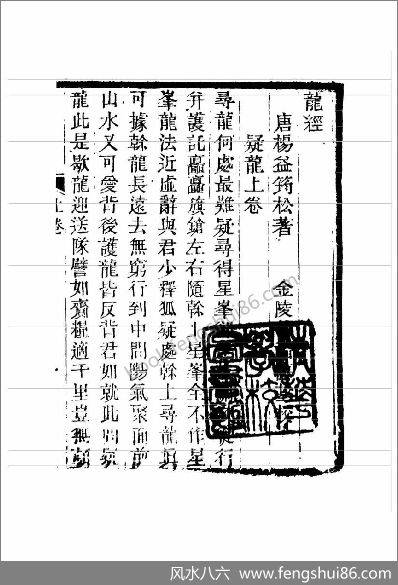 龍經
唐楊益筠松著 金陵
疑龍上卷
尋龍何處最難疑尋得星峯 行
并護託矗矗旗鎗左右隨幹上星峯全不作星
峯龍法近虛辭與君少釋狐疑處幹上尋龍眞
可據幹龍長遠去無窮行到中間陽氣聚面前
山水又可愛背後護龍皆反背君如就此問
龍此是歇龍迎送隊譬如齎糧適千里豈無
上卷
风水八六 - www.fengshui86.com